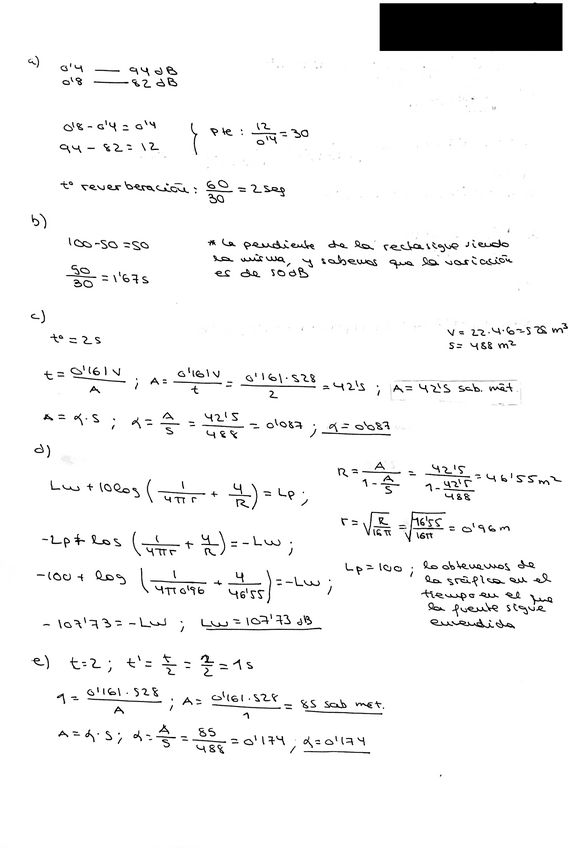 a)
0'4 — 94 dB
0'8 — 82 dB
0'8 - 0'4 = 0'4
94 - 82 = 12
Pte : 12/0'4 = 30
tº reverberación : 60/30 = 2 seg
b)
100-50 = 50
50/30 = 1'67 s
* La pendiente de la recta sigue siendo
la misma, y sabemos que la variación
es de 50 dB
c)
tº = 2 s
V = 22·4·6 = 528 m³
S = 488 m²
t = 0'161V/A ; A = 0'161V/t = 0'161·528/2 = 42'5 ; A = 42'5 sab. mét.
A = α·S ; α = A/S = 42'5/488 = 0'087 ; α = 0'087
d)
Lw + 10log (1/4πr + 4/R) = Lp ;
-Lp + log (1/4πr + 4/R) = -Lw ;
-100 + log (1/4π0'96 + 4/46'55) = -Lw ;
- 107'73 = -Lw ; Lw = 107'73 dB
R = A/(1 - A/S) = 42'5/(1 - 42'5/488) = 46'55 m²
r = √(R/16π) = √(46'55/16π) = 0'96 m
Lp = 100 ; lo obtenemos de
la gráfica en el
tiempo en el que
la fuente sigue
encendida
e) t=2 ; t' = t/2 = 2/2 = 1 s
1 = 0'161·528/A ; A = 0'161·528/1 = 85 sab met.
A = α·S ; α = A/S = 85/488 = 0'174 ; α = 0'174